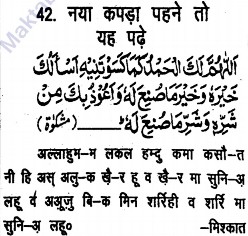 42. नया कपड़ा पहने तो
यह पढ़े
اَللّٰهُمَّ لَكَ الْحَمْدُ كَمَا كَسَوْتَنِيْهِ اَسْاَلُكَ
خَيْرَهٗ وَخَيْرَ مَا صُنِعَ لَهٗ وَاَعُوْذُ بِكَ مِنْ
شَرِّهٖ وَشَرِّ مَا صُنِعَ لَهٗ (مشکوٰۃ)
अल्लाहुम-म लकल हम्दु कमा कसौ-त
नी हि अस् अलु-क ख़ै-र हू व ख़ै-र मा सुनि-अ़
लहू व अअ़ूजु बि-क मिन शर्रिही व शर्रि मा
सुनि-अ़ लहू०
-मिश्कात
Maktab